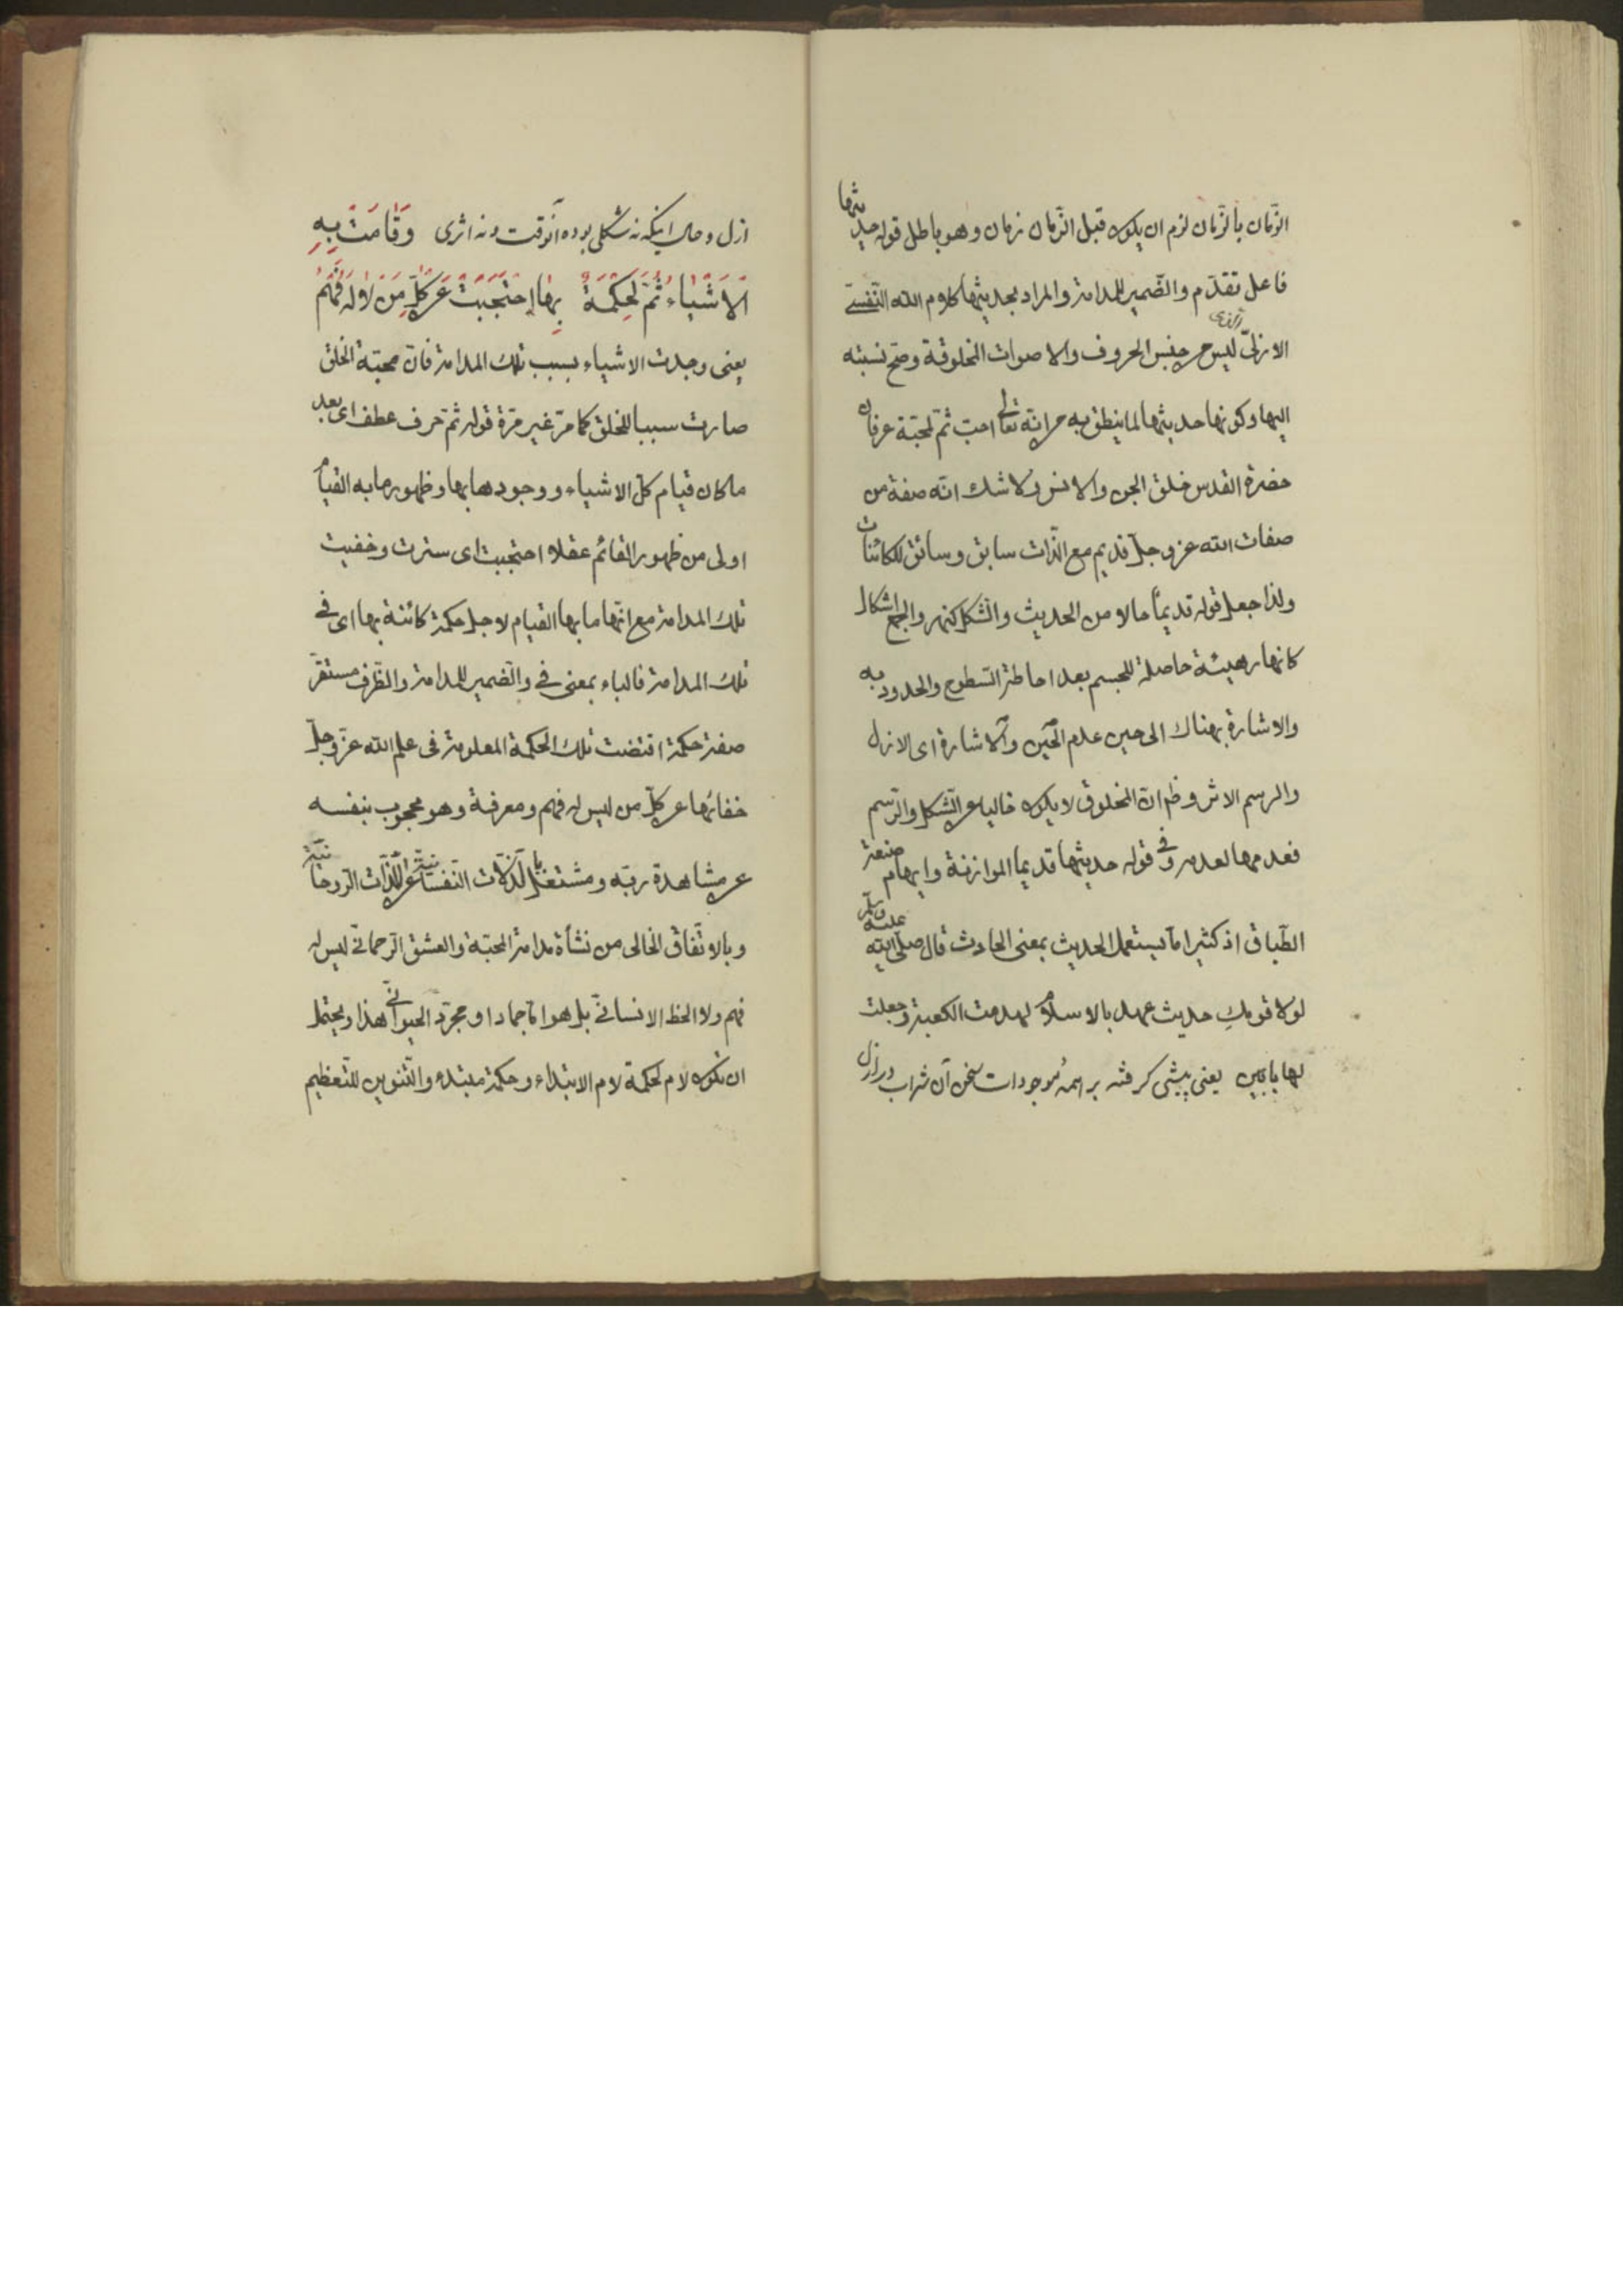 الزّمان بالزّمان لزم ان يكون قبل الزّمان زمان وهو باطل قوله حديثها
فاعل تقدّم والضّمير للمدامة والمراد بحديثها كلام الله النّفسىّ
الازلىّ الذى ليس من جنس الحروف والاصوات المخلوقة وصحّ نسبته
اليها وكونها حديثها لما ينطق به من انّه تعالى احبّ ثمّ لمحبّة عرفان
حضرة القدس خلق الجن والانس ولا شك انّه صفة من
صفات الله عز وجلّ قديم مع الذّات سابق وسائق للكائنات
ولذا جعل قوله قديماً حالا من الحديث والشّكل كنهر والجمع اشكال
كانهار هيئة حاصلة للجسم بعد احاطة السّطوح والحدود به
والاشارة بهناك الى حين عدم الحين والاشارة اى الازل
والرسم الاثر وظ انّ المخلوق لا يكون خاليا عن الشّكل والرّسم
فعدمهما لعدمه وفى قوله حديثها قديما الموازنة وايهام صنعة
الطّباق اذ كثيرا ما يستعمل الحديث بمعنى الحادث قال صلّى الله عليه وسلّم
لولا قومكِ حديث عهد بالاسلام لهدمت الكعبة وجعلت
لها بابين يعنى پيشى گرفته بر همهٔ موجودات سخن آن شراب در ازل
ازل وحال اينكه نه شكلى بوده آنوقت ونه اثرى وَقَامَتْ بِهِ
الاَشْيَاءُ ثُمَّ لِحِكْمَةٍ بِهَا اِحْتَجَبَتْ عَنْ كُلِّ مَنْ لا لَهُ فَهْمُ
يعنى وجدت الاشياء بسبب تلك المدامة فانّ محبّة الخلق
صارت سببا للخلق كما مرّ غير مرّة قوله ثمّ حرف عطف اى بعد
ما كان قيام كلّ الاشياء ووجودها بها وظهور ما به القيام
اولى من ظهور القائم عقلا احتجبت اى سترت وخفيت
تلك المدامة مع انّها ما بها القيام لاجل حكمة كائنة بها اى فى
تلك المدامة فالباء بمعنى فى والضّمير للمدامة والظّرف مستقرّ
صفة حكمة اقتضت تلك الحكمة المعلومة فى علم الله عزّ وجلّ
خفائها عن كلّ من ليس له فهم ومعرفة وهو محجوب بنفسه
عن مشاهدة ربّه ومشتغل باللّذّات النّفسانيّة عن اللّذّات الرّوحانيّة
وبالاتّفاق الخالى من نشأة مدامة المحبّة والعشق الرّحمانىّ ليس له
فهم ولا الحظ الانسانىّ بل هو امّا جماد او مجرّد الحيوانىّ هذا ويحتمل
ان تكون لام لحكمة لام الابتداء وحكمة مبتدء والتّنوين للتّعظيم